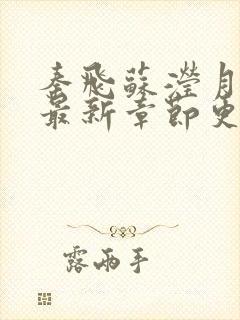 秦飛蘇瀅月
最新章節更
露兩手